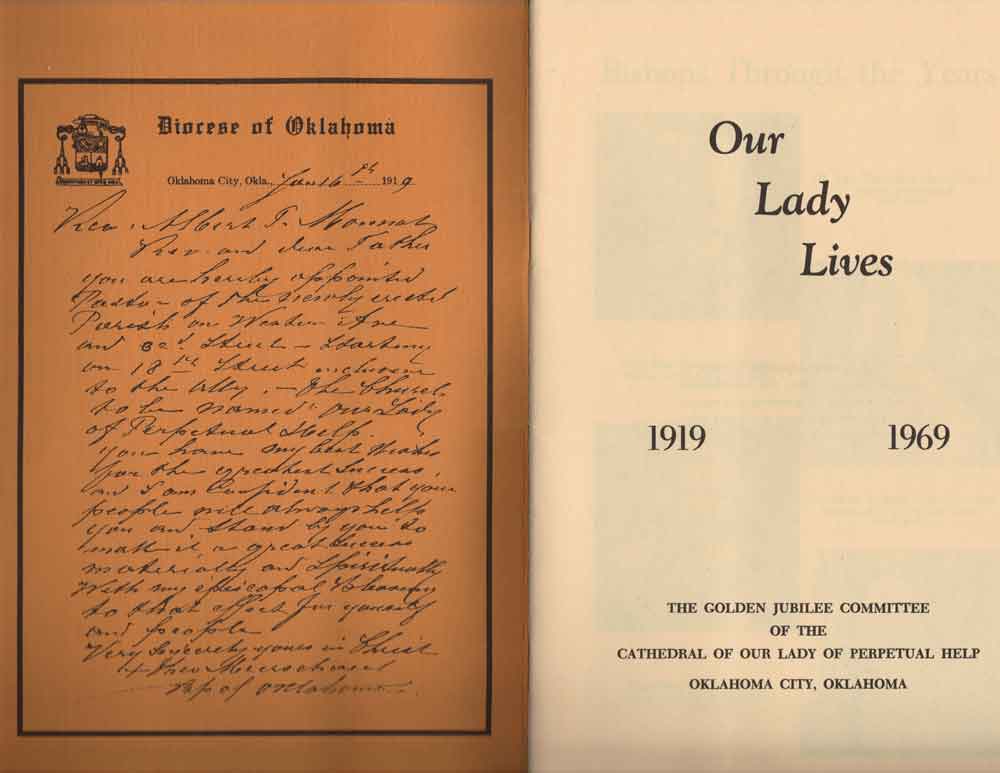 Diocese of Oklahoma
Oklahoma City, Okla., 1919
Rev. Albert
Rev. and dear Father
you are hereby appointed
Pastor of the newly erected
Parish on Western Ave
and Street – starting
on 18th Street inclusive
to the Alley. – the Church
to be named: Our Lady
of Perpetual Help.
you have my best wishes
for the greatest success,
and I am confident that your
people will always help
you and stand by you to
make it a great success
materially and spiritually
With my episcopal blessing
to that effect for yourself
and people
Very sincerely yours in Christ
+ Theo Meerschaert
Bp of Oklahoma
Our
Lady
Lives
1919 1969
THE GOLDEN JUBILEE COMMITTEE
OF THE
CATHEDRAL OF OUR LADY OF PERPETUAL HELP
OKLAHOMA CITY, OKLAHOMA
Bishops Through the Years